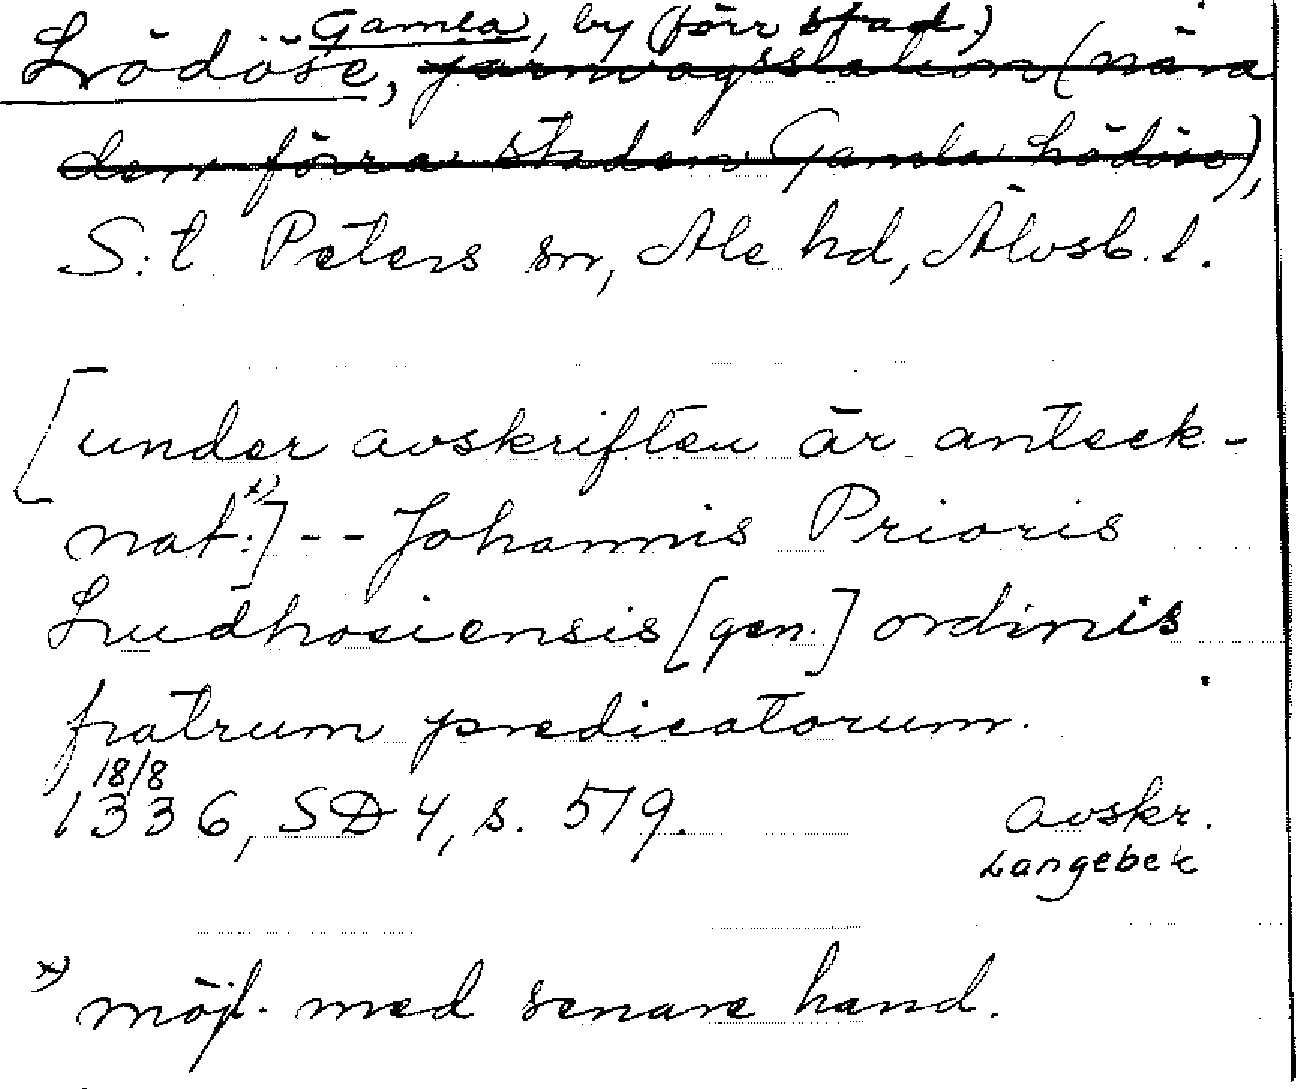 Gamla, by (förr stad)
Lödöse, järnvägsstation (nära
den förra staden Gamla Lödöse),
S:t Peters sn, Ale hd, Älvsb. l.
[under avskriften är anteck-
nat:x)] -- Johannis Prioris
Ludhosiensis [gen.] ordinis
fratrum predicatorum.
18/8
1336, SD 4, s. 579. avskr.
Langebek
x) möjl. med senare hand.